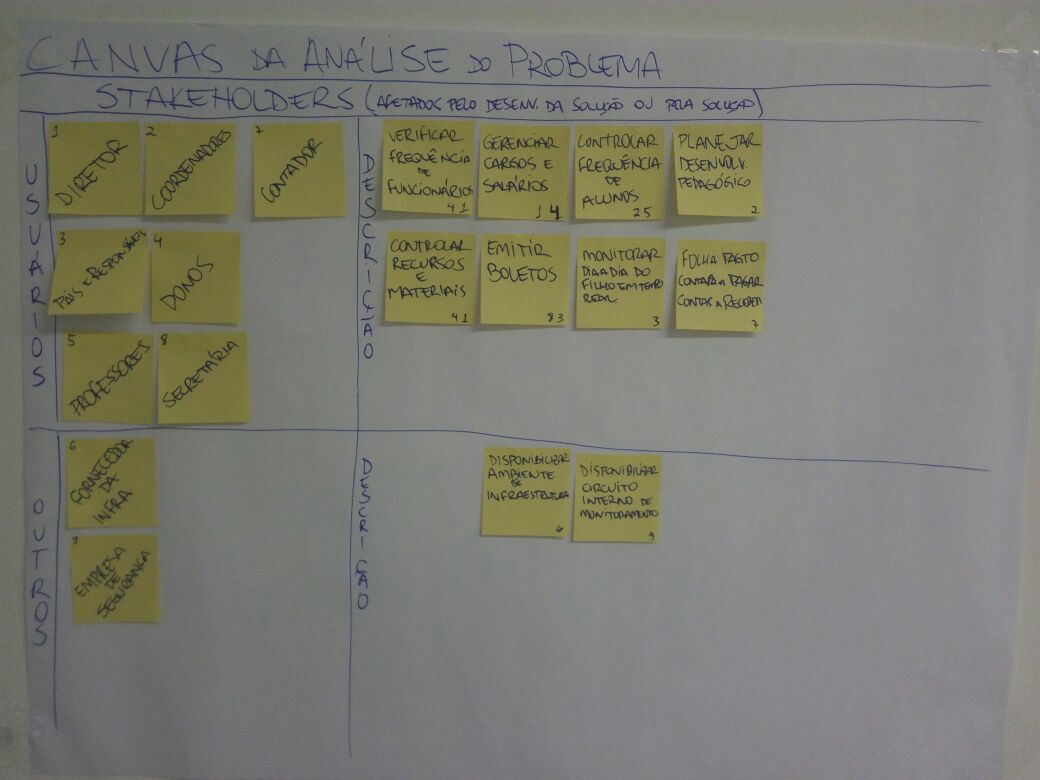 CANVAS DA ANÁLISE DO PROBLEMA
STAKEHOLDERS (AFETADOS PELO DESENV. DA SOLUÇÃO OU PELA SOLUÇÃO)
USUÁRIOS
1
DIRETOR
2
COORDENADORES
7
CONTADOR
3
PAIS E RESPONSÁVEIS
4
DONOS
5
PROFESSORES
8
SECRETÁRIA
DESCRIÇÃO
VERIFICAR
FREQUÊNCIA
DE
FUNCIONÁRIOS
4 1
GERENCIAR
CARGOS E
SALÁRIOS
1 4
CONTROLAR
FREQUÊNCIA
DE
ALUNOS
2 5
PLANEJAR
DESENVOLV.
PEDAGÓGICO
2
CONTROLAR
RECURSOS
E
MATERIAIS
4 1
EMITIR
BOLETOS
8 3
MONITORAR
DIA A DIA DO
FILHO EM TEMPO
REAL.
3
FOLHA PAGTO
CONTAS A PAGAR
CONTAS A RECEBER
7
OUTROS
6
FORNECEDOR
DA
INFRA
9
EMPRESA
DE
SEGURANÇA
DESCRICAO
DISPONIBILIZAR
AMBIENTE
DE
INFRAESTRUTURA
6
DISPONIBILIZAR
CIRCUITO
INTERNO DE
MONITORAMENTO
9